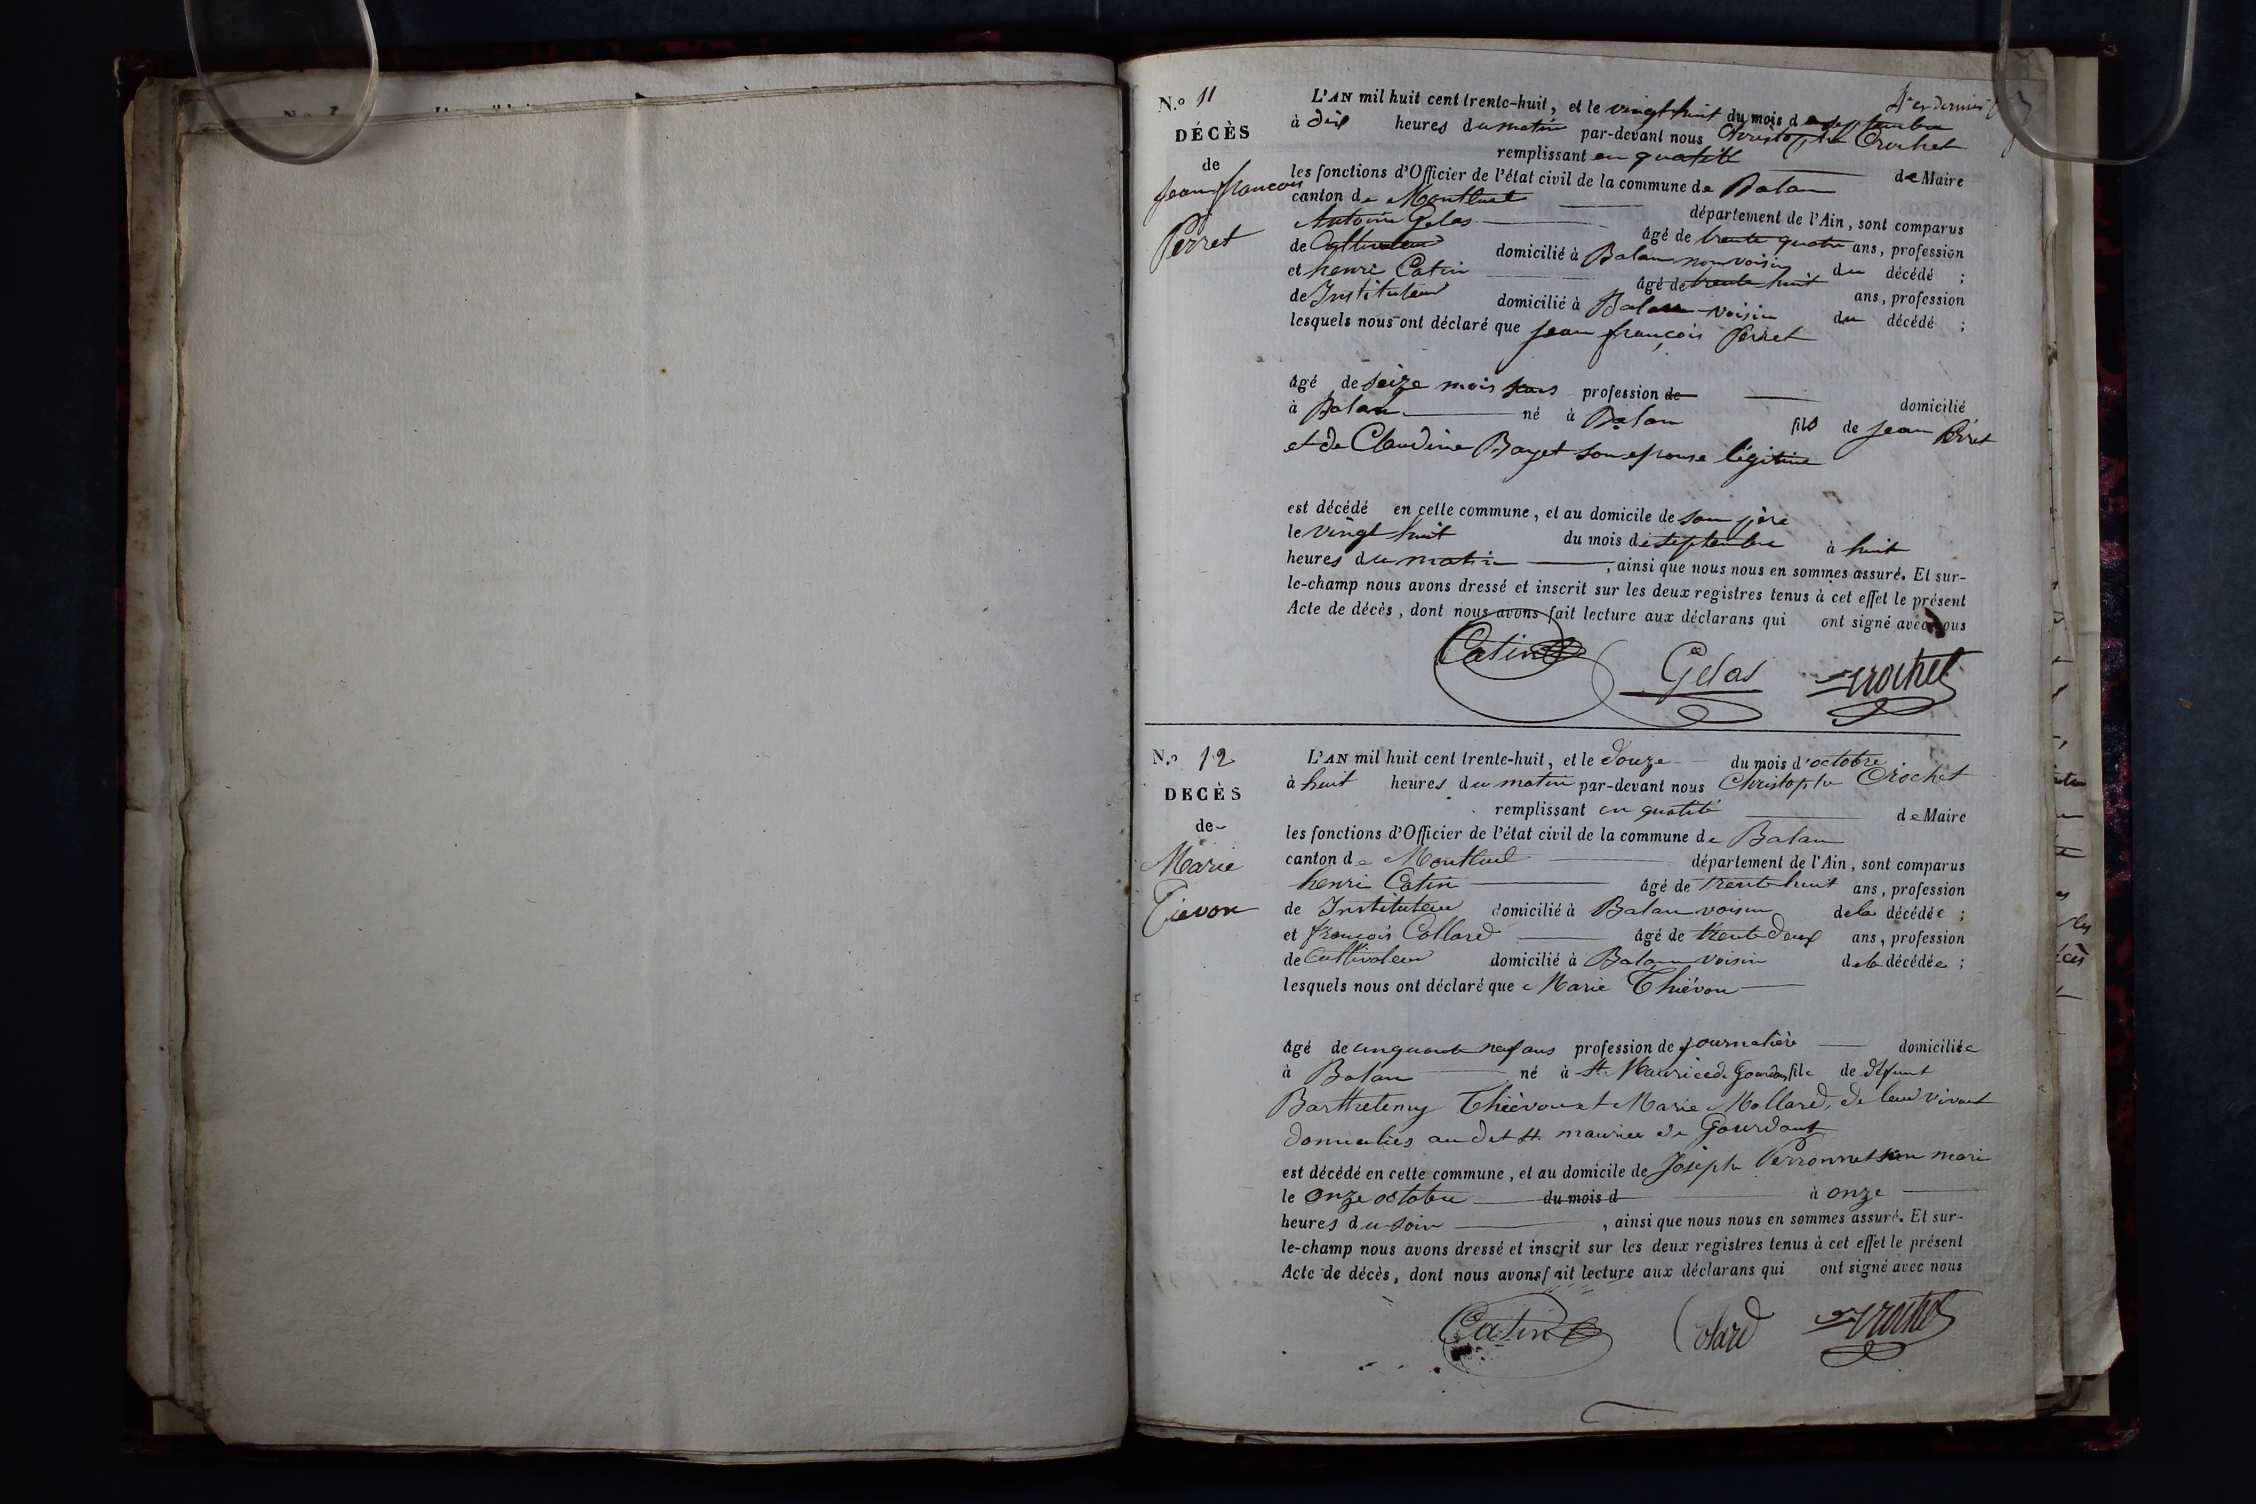 N.o 11
DÉCÈS
de
Jean françois
Perret
4e et dernier
L'AN mil huit cent trente-huit, et le vingt huit du mois de septembre
à dix heures du matin par-devant nous Christophe Crochet
remplissant en qualité de Maire
les fonctions d'Officier de l'état civil de la commune de Balan
canton de Montluel département de l'Ain, sont comparus
Antoine Gelas âgé de trente quatre ans, profession
de Cultivateur domicilié à Balan non voisin du décédé ;
et henri Catin âgé de trente huit ans, profession
de Instituteur domicilié à Balan voisin du décédé ;
lesquels nous ont déclaré que jean françois Perret
âgé de seize mois sans profession de domicilié
à Balan né à Balan fils de jean Perret
et de Claudine Bayet son epouse légitime
est décédé en cette commune, et au domicile de son père
le vingt huit du mois de septembre à huit
heures du matin , ainsi que nous nous en sommes assuré. Et sur-
le-champ nous avons dressé et inscrit sur les deux registres tenus à cet effet le présent
Acte de décès, dont nous avons fait lecture aux déclarans qui ont signé avec nous
Catin Gelas Crochet
N.o 12
DECÈS
de
Marie
Tievon
L'AN mil huit cent trente-huit, et le douze du mois d'octobre
à huit heures du matin par-devant nous Christophe Crochet
remplissant en qualité de Maire
les fonctions d'Officier de l'état civil de la commune de Balan
canton de Montluel département de l'Ain, sont comparus
henri Catin âgé de trente huit ans, profession
de Instituteur domicilié à Balan voisin de la décédée ;
et françois Collard âgé de trente deux ans, profession
de Cultivateur domicilié à Balan voisin de la décédée ;
lesquels nous ont déclaré que Marie Thiévon
âgé de cinquante neuf ans profession de journalière domiciliée
à Balan né à St Maurice de Gourdans fille de défunt
Barthelemy Thiévon et Marie Mollard, de leur vivant
domiciliés au dit St maurice de Gourdant
est décédé en cette commune, et au domicile de Joseph Perronnet son mari
le onze octobre du mois d à onze
heures du soir , ainsi que nous nous en sommes assuré. Et sur-
le-champ nous avons dressé et inscrit sur les deux registres tenus à cet effet le présent
Acte de décès, dont nous avons fait lecture aux déclarans qui ont signé avec nous
Catin Colard Crochet